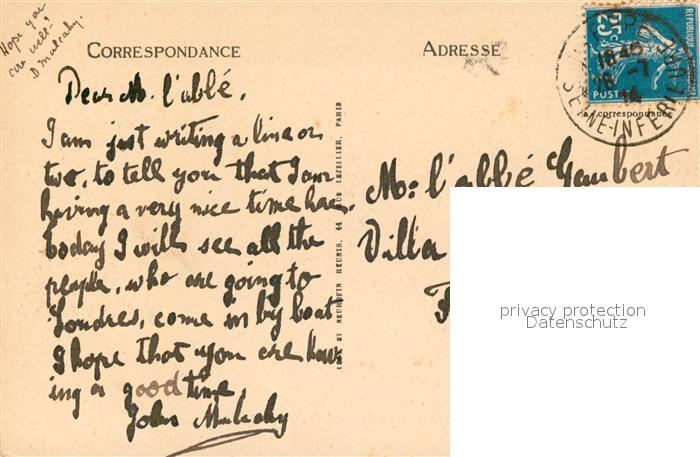 Hope you
are well!
D. Mulcahy.
CORRESPONDANCE
Dear M. l'abbé,
I am just writing a line or
two, to tell you that I am
having a very nice time here.
today I will see all the
people, who are going to
Londres, come in by boat
I hope that you are hav-
ing a good time.
John Mulcahy
NEURDEIN RÉUNIS, 44 LETELLIER, PARIS
ADRESSE
RÉPUBLIQUE
25c
POSTES
SEINE-INFERIEURE
la correspondance
Mr l'abbé Gaubert
Villa
privacy protection
Datenschutz